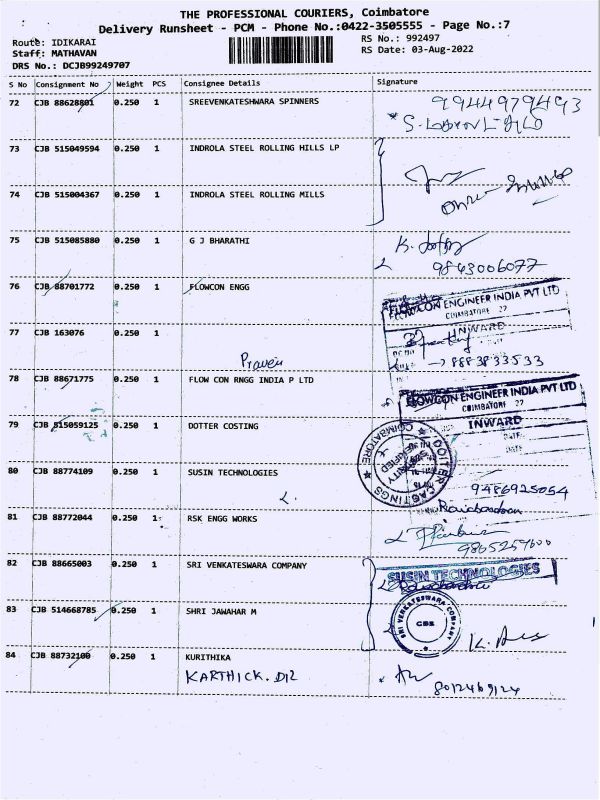 THE PROFESSIONAL COURIERS, Coimbatore
Delivery Runsheet - PCM - Phone No.:0422-3505555 - Page No.:7
Route: IDIKARAI
RS No.: 992497
Staff: MATHAVAN
RS Date: 03-Aug-2022
DRS No.: DCJB99249707
S No Consignment No Weight PCS Consignee Details Signature
72 CJB 88628801 0.250 1 SREEVENKATESHWARA SPINNERS
9944979493
73 CJB 515049594 0.250 1 INDROLA STEEL ROLLING HILLS LP
74 CJB 515004367 0.250 1 INDROLA STEEL ROLLING MILLS
75 CJB 515085880 0.250 1 G J BHARATHI
9843006077
76 CJB 88701772 0.250 1 FLOWCON ENGG
FLOWCON ENGINEER INDIA PVT LTD
COIMBATORE 22
INWARD
77 CJB 163076 0.250 1
8883833533
Praveen
78 CJB 88671775 0.250 1 FLOW CON RNGG INDIA P LTD
FLOWCON ENGINEER INDIA PVT LTD
COIMBATORE 22
INWARD
DATE
79 CJB 515059125 0.250 1 DOTTER COSTING
DOITER CASTINGS
COIMBATORE
SECURITY
VERIFIED
80 CJB 88774109 0.250 1 SUSIN TECHNOLOGIES
9486925054
Ravichandran
81 CJB 88772044 0.250 1 RSK ENGG WORKS
9865259600
82 CJB 88665003 0.250 1 SRI VENKATESWARA COMPANY
SUSIN TECHNOLOGIES
83 CJB 514668785 0.250 1 SHRI JAWAHAR M
SRI VENKATESWARA COMPANY
CBE
84 CJB 88732100 0.250 1 KURITHIKA
KARTHICK.
8012469124